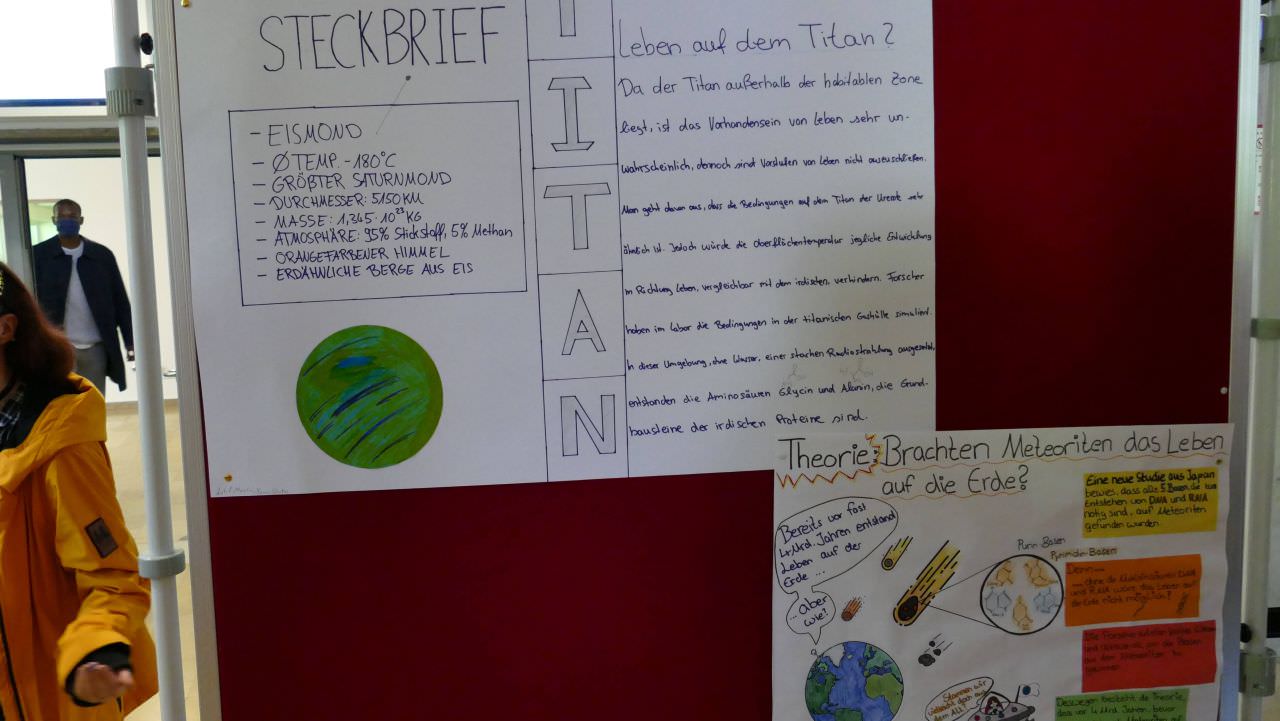 STECKBRIEF
- EISMOND
- Ø TEMP. -180°C
- GRÖßTER SATURNMOND
- DURCHMESSER: 5150 KM
- MASSE: 1,345·10²³ KG
- ATMOSPHÄRE: 95% Stickstoff, 5% Methan
- ORANGEFARBENER HIMMEL
- ERDÄHNLICHE BERGE AUS EIS
T
I
T
A
N
Leben auf dem Titan?
Da der Titan außerhalb der habitablen Zone
liegt, ist das Vorhandensein von Leben sehr un-
wahrscheinlich, dennoch sind Vorstufen von Leben nicht auszuschließen.
Man geht davon aus, dass die Bedingungen auf dem Titan der Urerde sehr
ähnlich ist. Jedoch würde die Oberflächentemperatur jegliche Entwicklung
in Richtung Leben, vergleichbar mit dem irdischen, verhindern. Forscher
haben im Labor die Bedingungen in der titanischen Gashülle simuliert.
In dieser Umgebung, ohne Wasser, einer starken Radiostrahlung ausgesetzt,
entstanden die Aminosäuren Glycin und Alanin, die Grund-
bausteine der irdischen Proteine sind.
Theorie: Brachten Meteoriten das Leben
auf die Erde?
Bereits vor fast
4 Mrd. Jahren entstand
Leben auf der
Erde ...
...aber
wie?
Eine neue Studie aus Japan
bewies, dass alle 5 Basen, die zum
Entstehen von DNA und RNA
nötig sind, auf Meteoriten
gefunden wurden.
Purin-Basen
Pyrimidin-Basen
Denn...
... ohne die
und RNA wäre das Leben auf
der Erde nicht möglich!
Stammen wir
vielleicht doch aus
dem All?
Deswegen besteht die Theorie,
dass vor 4 Mrd. Jahren, bevor